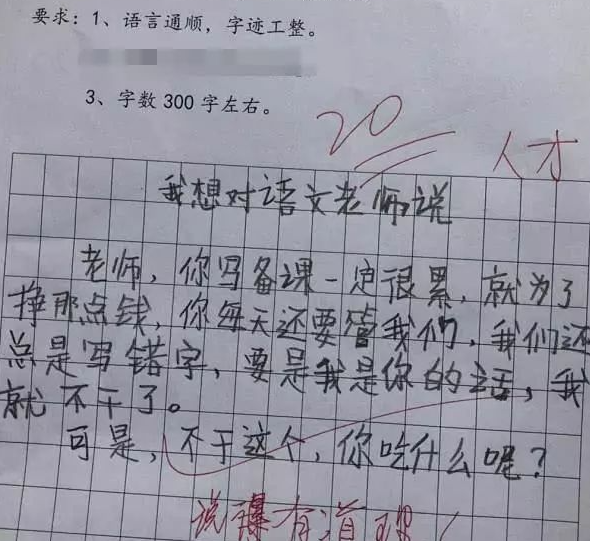 要求：1、语言通顺，字迹工整。
3、字数 300 字左右。
20
人才
我想对语文老师说
老师，你写备课一定很累，就为了
挣那点钱，你每天还要管我们，我们还
总是写错字，要是我是你的话，我
就不干了。
可是，不干这个，你吃什么呢？
说得有道理！